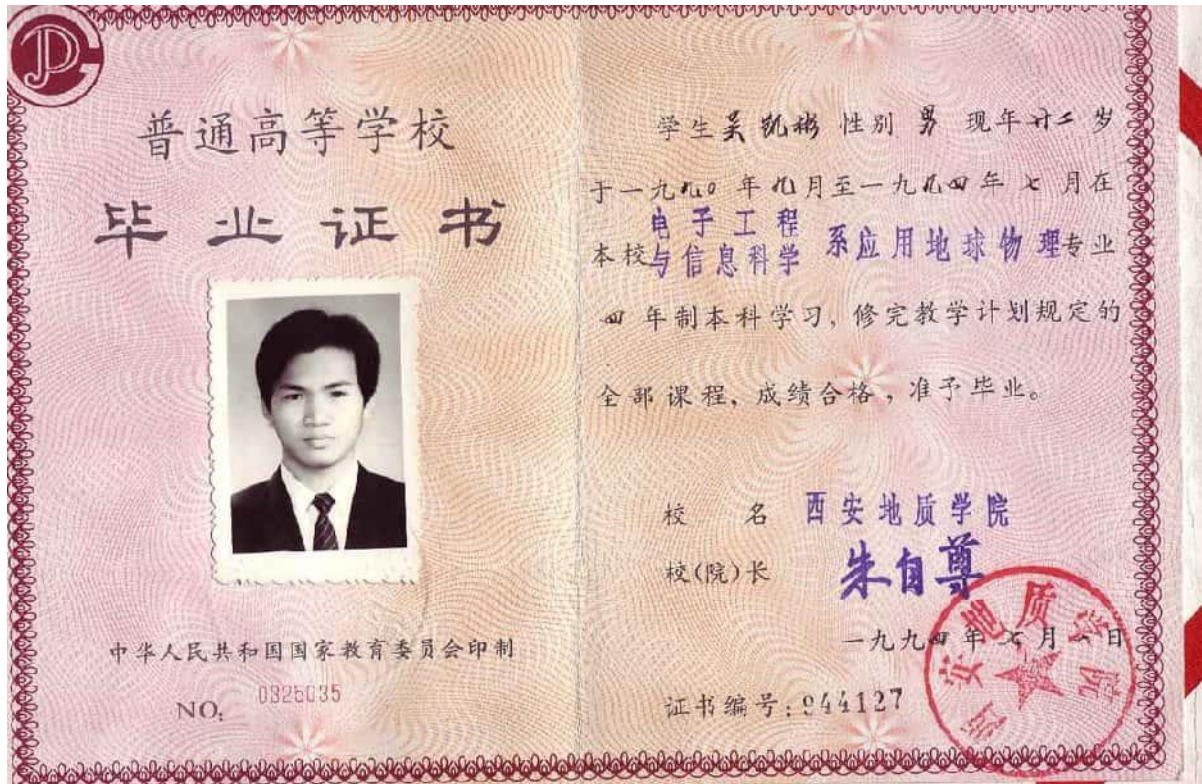 普通高等学校
毕业证书
中华人民共和国国家教育委员会印制
NO: 0325035
学生吴凯彬 性别 男 现年廿二岁
于一九九〇年九月至一九九四年七月在
本校电子工程与信息科学系应用地球物理专业
四年制本科学习,修完教学计划规定的
全部课程,成绩合格,准予毕业。
校 名 西安地质学院
校(院)长 朱自尊
一九九四年七月一日
证书编号:944127
西安地质学院